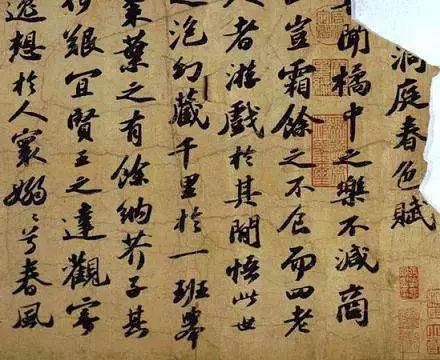 洞庭春色賦
聞橘中之樂不減商
山豈霜餘之不食而四老
人者游戲於其間悟此世
之泡幻藏千里於一班舉
棗葉之有餘納芥子其
何艱宜賢王之達觀寄
逸想於人寰嫋々兮春風